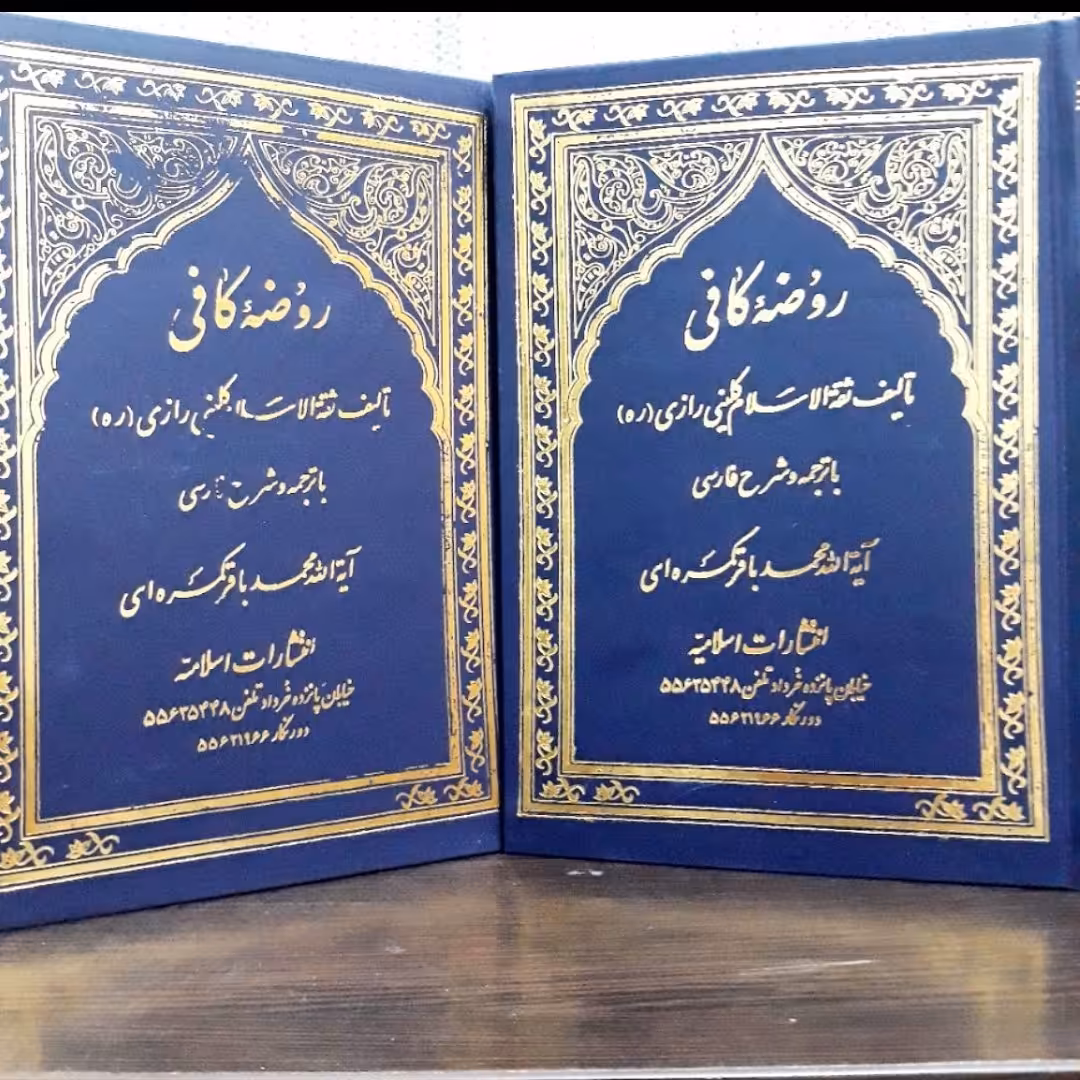 روضهٔ کافی
تألیف ثقة الاسلام کلینی رازی (ره)
با ترجمه و شرح فارسی
آیة الله محمد باقر کمره ای
انتشارات اسلامیه
خیابان پانزده خرداد تلفن ۵۵۶۳۵۴۴۸
دورنگار ۵۵۶۲۱۹۶۶
روضهٔ کافی
تألیف ثقة الاسلام کلینی رازی (ره)
با ترجمه و شرح فارسی
آیة الله محمد باقر کمره ای
انتشارات اسلامیه
خیابان پانزده خرداد تلفن ۵۵۶۳۵۴۴۸
دورنگار ۵۵۶۲۱۹۶۶